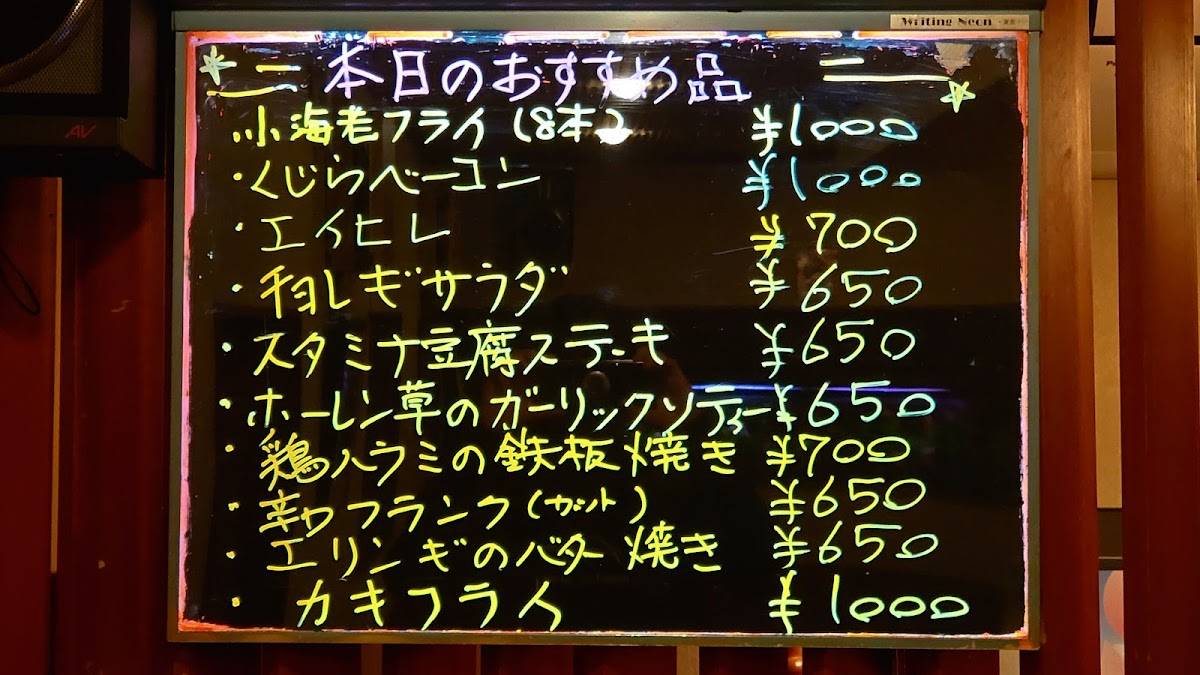 Writing Neon
本日のおすすめ品
小海老フライ(8本) ¥1000
・くじらベーコン ¥1000
・エイヒレ ¥700
・チョレギサラダ ¥650
・スタミナ豆腐ステーキ ¥650
・ホーレン草のガーリックソティー ¥650
・鶏ハラミの鉄板焼き ¥700
・辛口フランク(カット) ¥650
・エリンギのバター焼き ¥650
・カキフライ ¥1000
AV